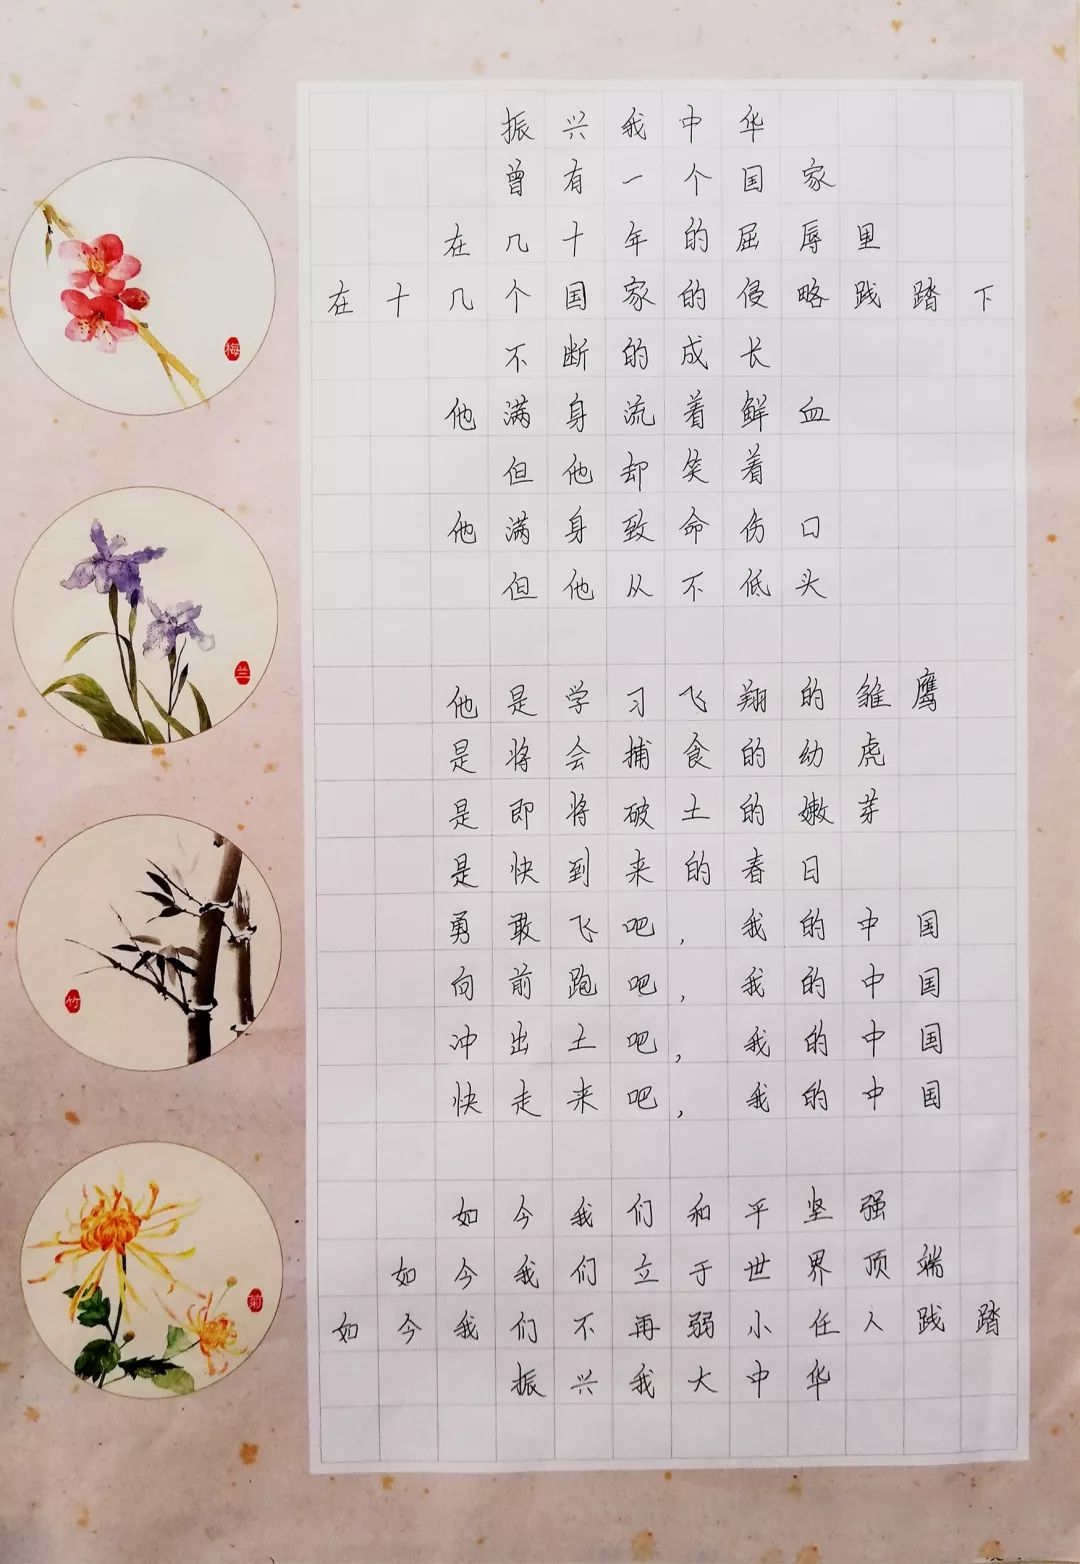 振兴我中华
曾有一个国家
在几十年的屈辱里
在十几个国家的侵略践踏下
不断的成长
他满身流着鲜血
但他却笑着
他满身致命伤口
但他从不低头
他是学习飞翔的雏鹰
是将会捕食的幼虎
是即将破土的嫩芽
是快到来的春日
勇敢飞吧，我的中国
向前跑吧，我的中国
冲出土吧，我的中国
快走来吧，我的中国
如今我们和平坚强
如今我们立于世界顶端
如今我们不再弱小任人践踏
振兴我大中华
梅
兰
竹
菊